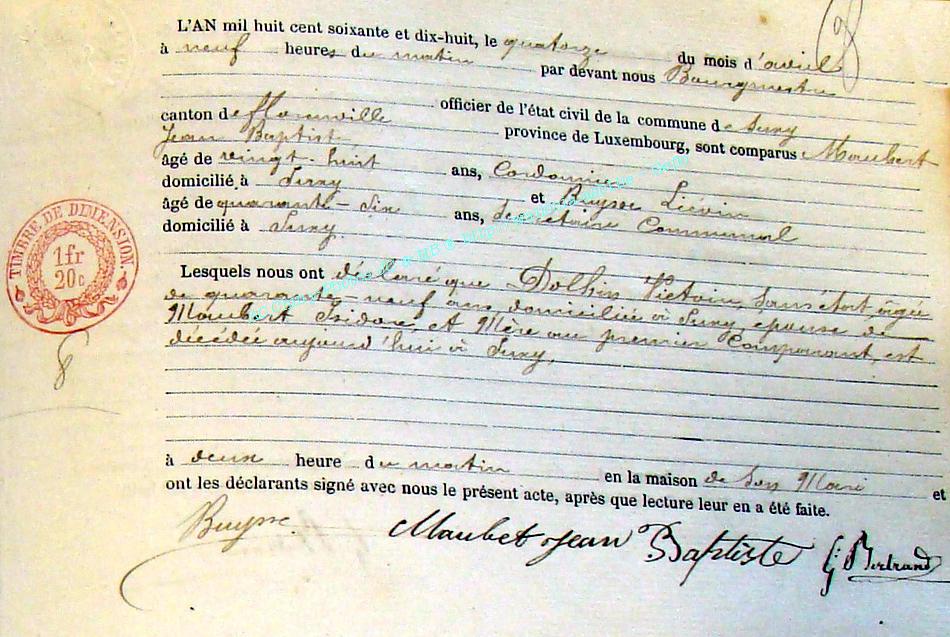 L'AN mil huit cent soixante et dix-huit, le quatorze du mois d'avril
à neuf heures du matin par devant nous Bourgmestre
officier de l'état civil de la commune de Suxy
canton de Florenville province de Luxembourg, sont comparus Maubert
Jean Baptist
âgé de vingt-huit ans, Cordonnier
domicilié à Suxy et Buysse Liévin
âgé de quarante-six ans, Secretaire Communal
domicilié à Suxy.
Lesquels nous ont déclaré que Victoire, Sans état âgée
de quarante-neuf ans domiciliée à Suxy, épouse de
Maubert Isidore et Mère au premier Comparant, est
décédée aujourd'hui à Suxy,
à deux heure du matin en la maison de Son Mari et
ont les déclarants signé avec nous le présent acte, après que lecture leur en a été faite.
Buysse Maubet Jean Baptiste G. Bertrand
TIMBRE DE DIMENSION.
1fr
20c